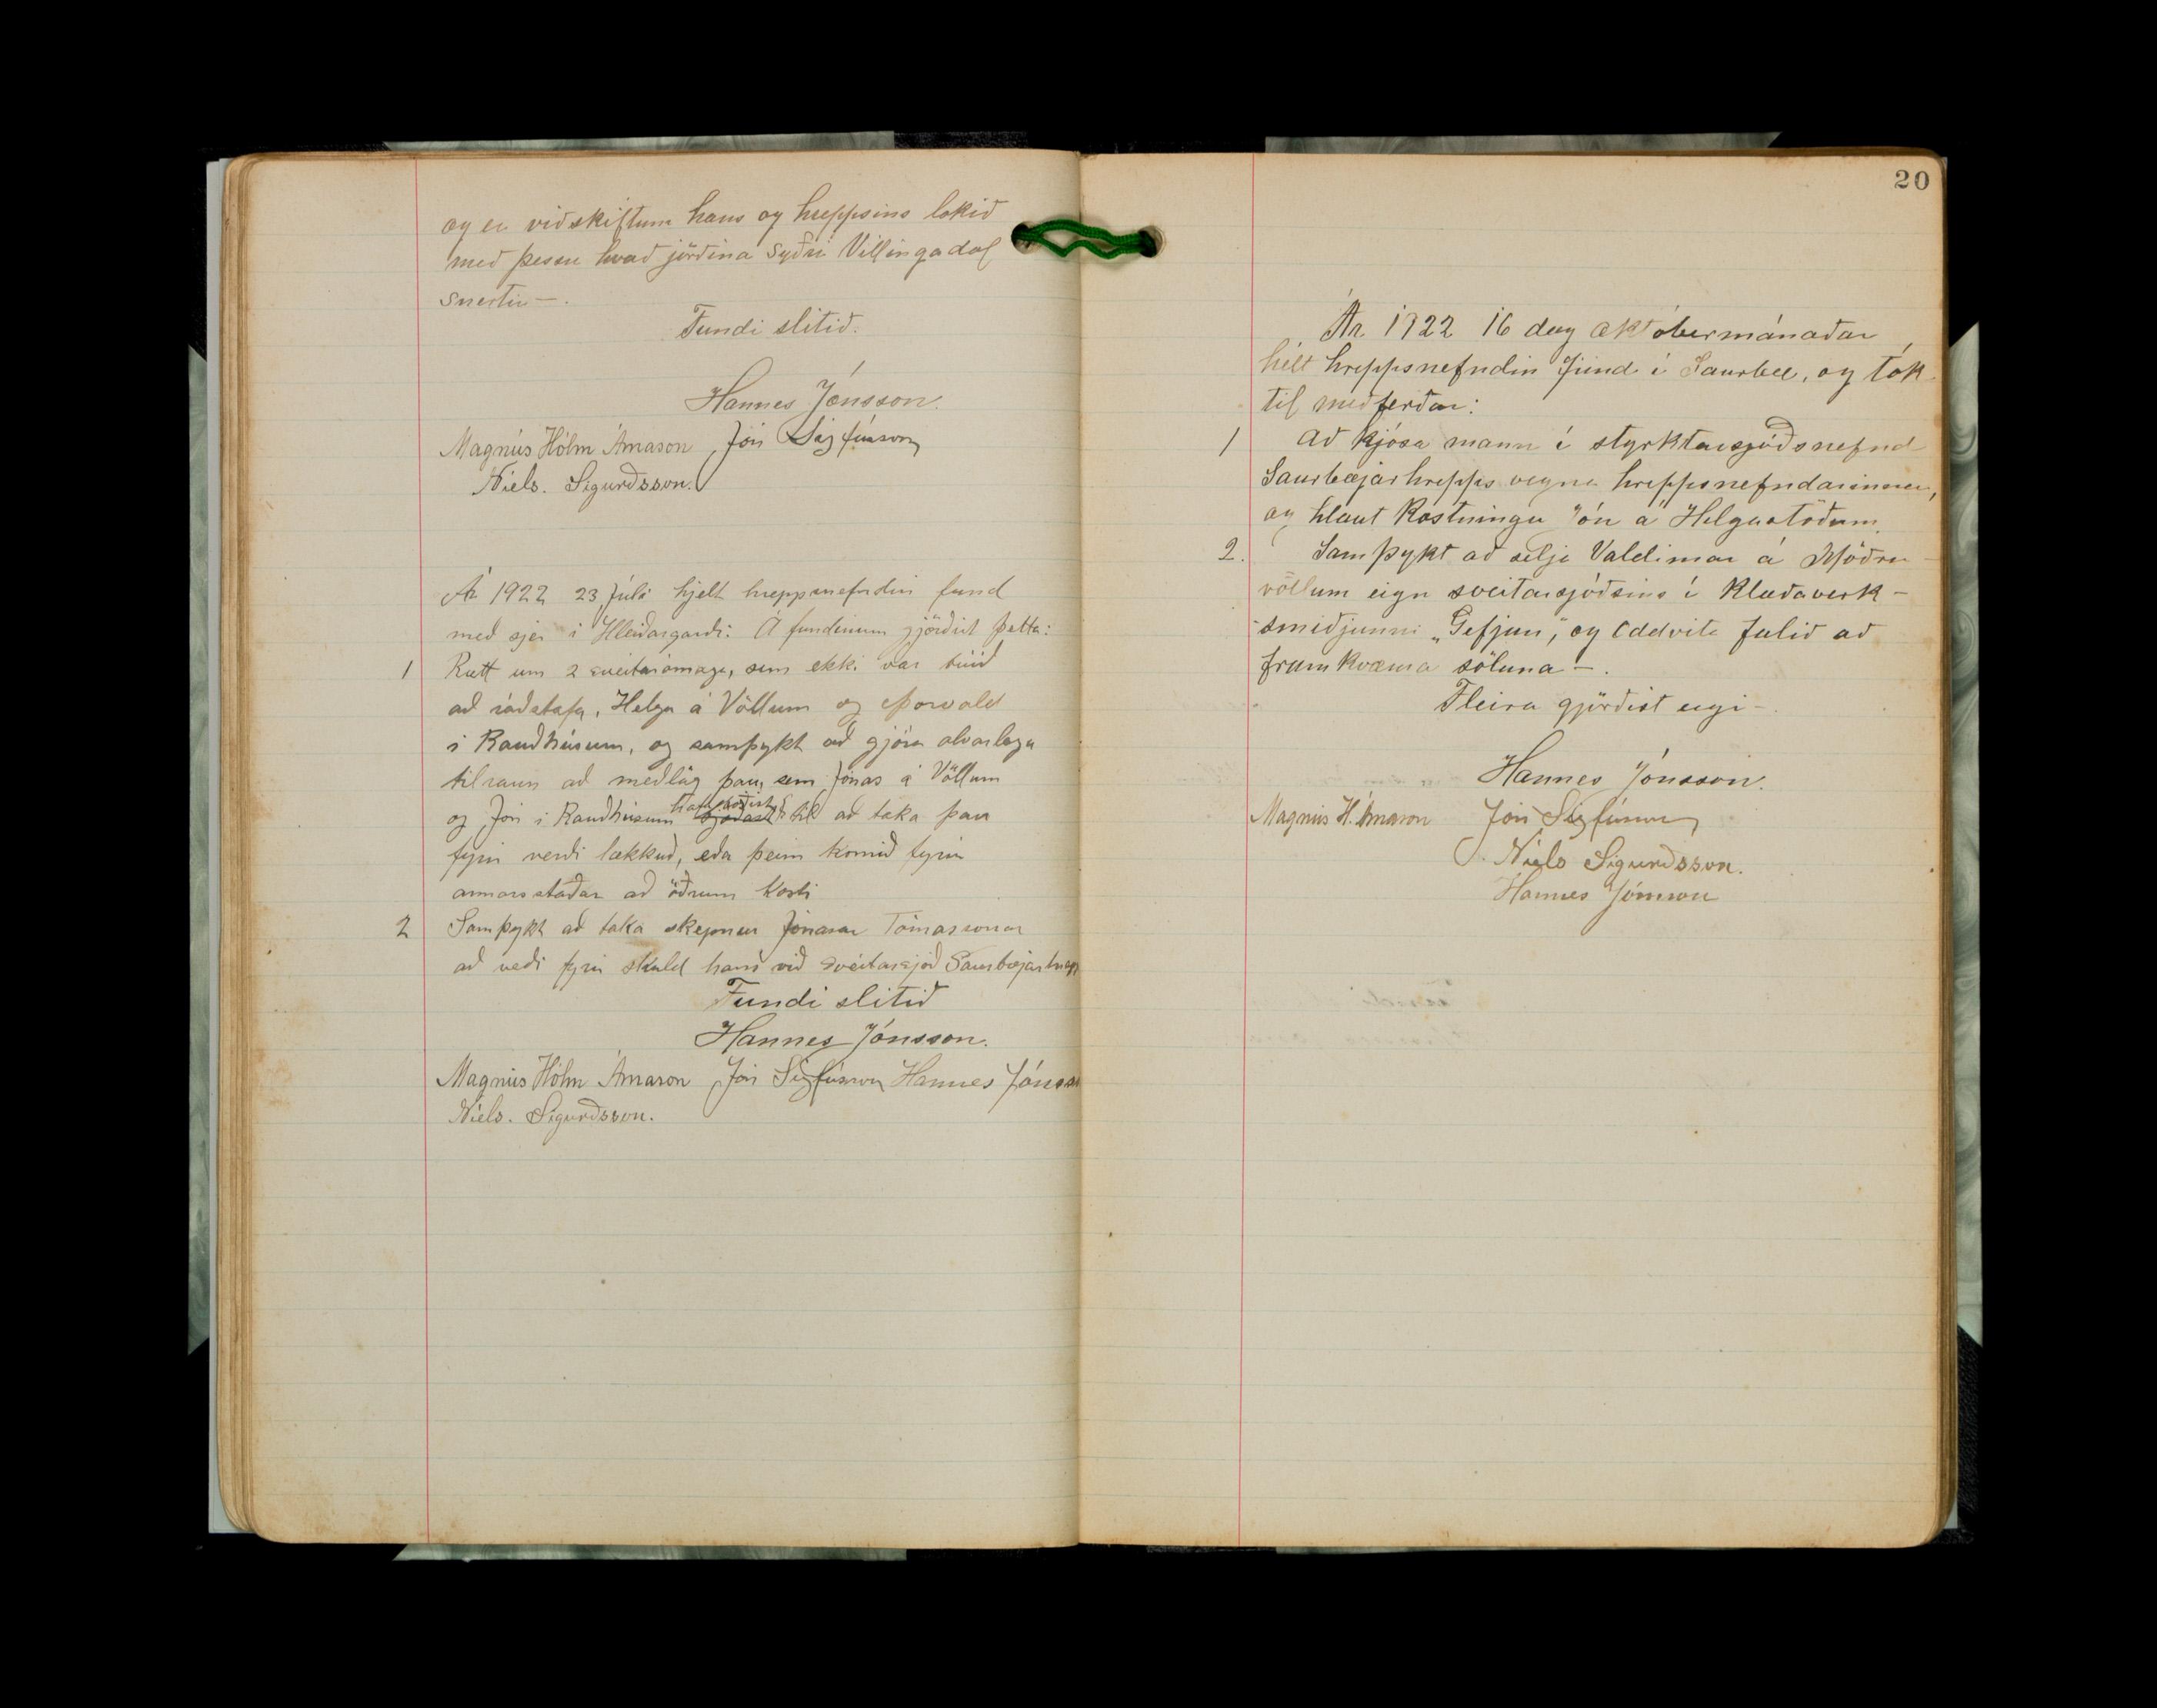 og er viðskiftum hans og hreppsins lokið
með þessu hvað jörðina Syðri Villingadal
snertir —.
Fundi slitið.
Hannes Jónsson.
Magnús Hólm Árnason Jón Sigfússon
Níels. Sigurðsson.
Ár 1922 23 Júlí hjelt hreppsnefndin fund
með sjer í Hleiðargarði. Á fundinum gjörðist þetta:
1 Rætt um 2 sveitarómaga, sem ekki var búið
að ráðstafa, Helga á Völlum og Þorvald
í Raudhúsum, og samþykt að gjöra alvarlega
tilraun að meðlög þau, sem Jónas á Völlum
og Jón í Raudhúsum hafa boðist til að taka þau
fyrir verði lækkuð, eða þeim komið fyrir
annarsstaðar að öðrum kosti
2 Samþykt að taka skepnur Jónasar Tómassonar
að veði fyrir skuld hans við sveitarsjóð Saurbæjarhrepps
Fundi slitið
Hannes Jónsson.
Magnús Hólm Árnason Jón Sigfússon Hannes Jónsson
Níels. Sigurðsson.
20
Ár 1922 16 dag októbermánaðar
hélt hreppsnefndin fund í Saurbæ, og tók
til meðferðar:
1 Að kjósa mann í styrktarsjóðsnefnd
Saurbæjarhrepps vegna hreppsnefndarinnar,
og hlaut kostningu Jón á Helgastöðum.
2. Samþykt að selja Valdimar á Möðru-
völlum eign sveitarsjóðsins í klæðaverk-
smiðjunni „Gefjun“, og Oddvita falið að
framkvæma söluna —.
Fleira gjörðist eigi —.
Hannes Jónsson.
Magnús H. Árnason Jón Sigfússon
Níels Sigurðsson.
Hannes Jónsson